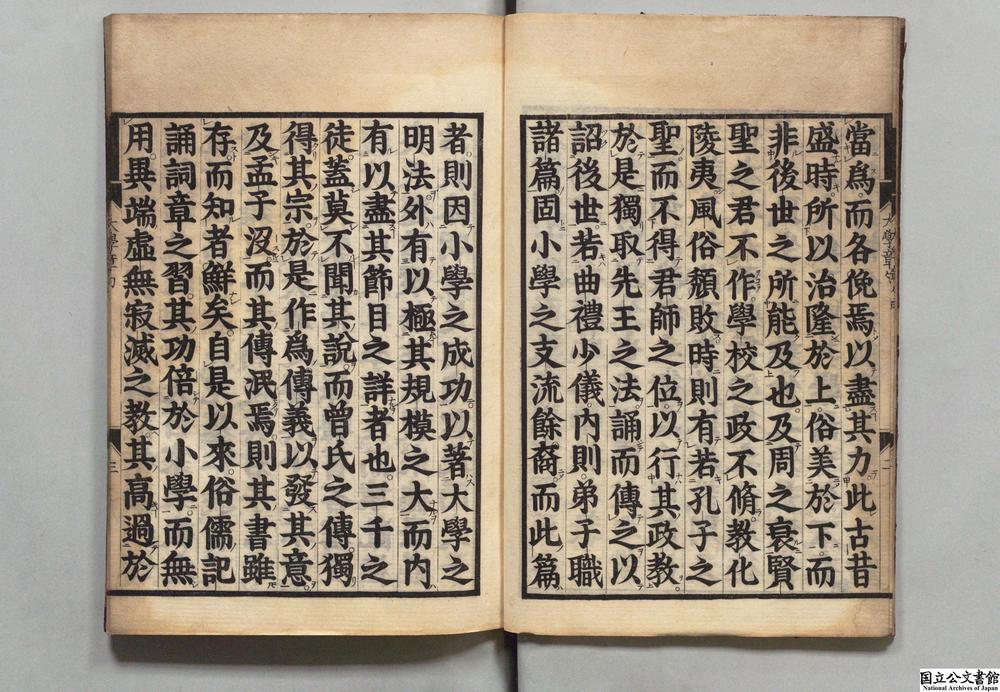 當爲而各俛焉以盡其力此古昔
盛時所以治隆於上俗美於下而
非後世之所能及也及周之衰賢
聖之君不作學校之政不脩教化
陵夷風俗頹敗時則有若孔子之
聖而不得君師之位以行其政教
於是獨取先王之法誦而傳之以
詔後世若曲禮少儀內則弟子職
諸篇固小學之支流餘裔而此篇
者則因小學之成功以著大學之
明法外有以極其規模之大而内
有以盡其節目之詳者也三千之
徒蓋莫不聞其說而曾氏之傳獨
得其宗於是作爲傳義以發其意
及孟子沒而其傳泯焉則其書雖
存而知者鮮矣自是以來俗儒記
誦詞章之習其功倍於小學而無
用異端虛無寂滅之教其高過於
三
国立公文書館
National Archives of Japan